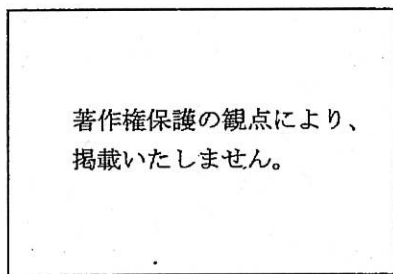 著作権保護の観点により、
掲載いたしません。